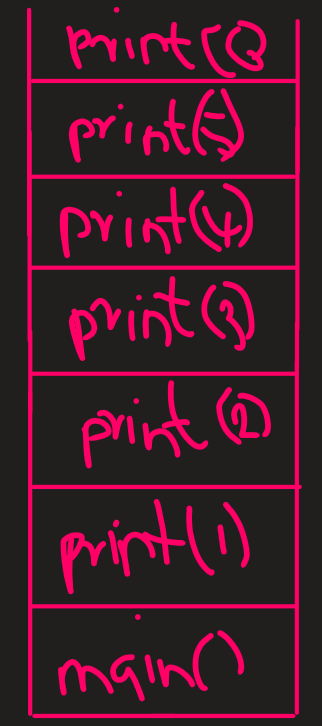 print(
print(5)
print(4)
print(3)
print(2)
print(1)
main()